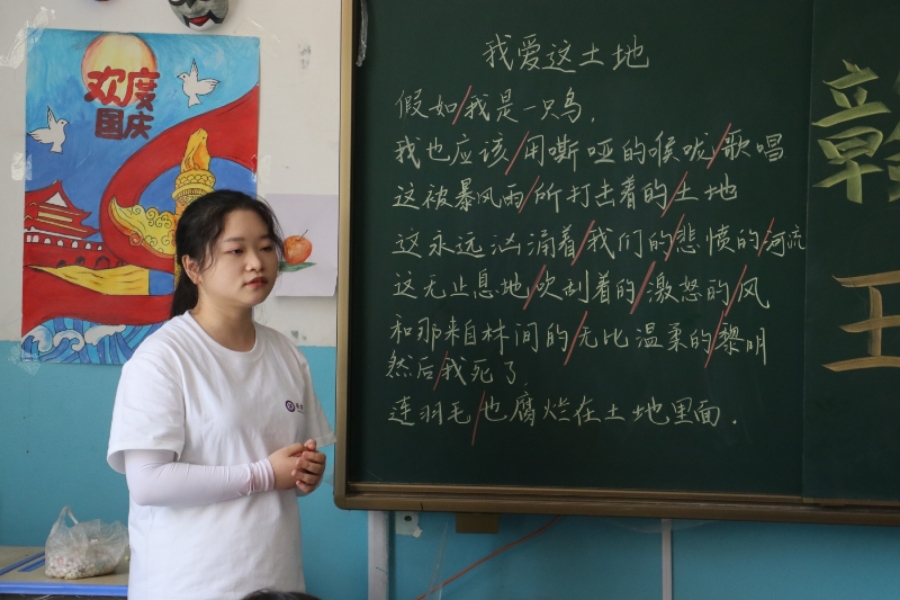 欢度
国庆
我爱这土地
假如/我是一只鸟,
我也应该/用嘶哑的喉咙/歌唱
这被暴风雨/所打击着的/土地
这永远汹涌着/我们的/悲愤的/河流
这无止息地/吹刮着的/激怒的/风
和那来自林间的/无比温柔的/黎明
然后/我死了
连羽毛/也腐烂在土地里面.
章
王